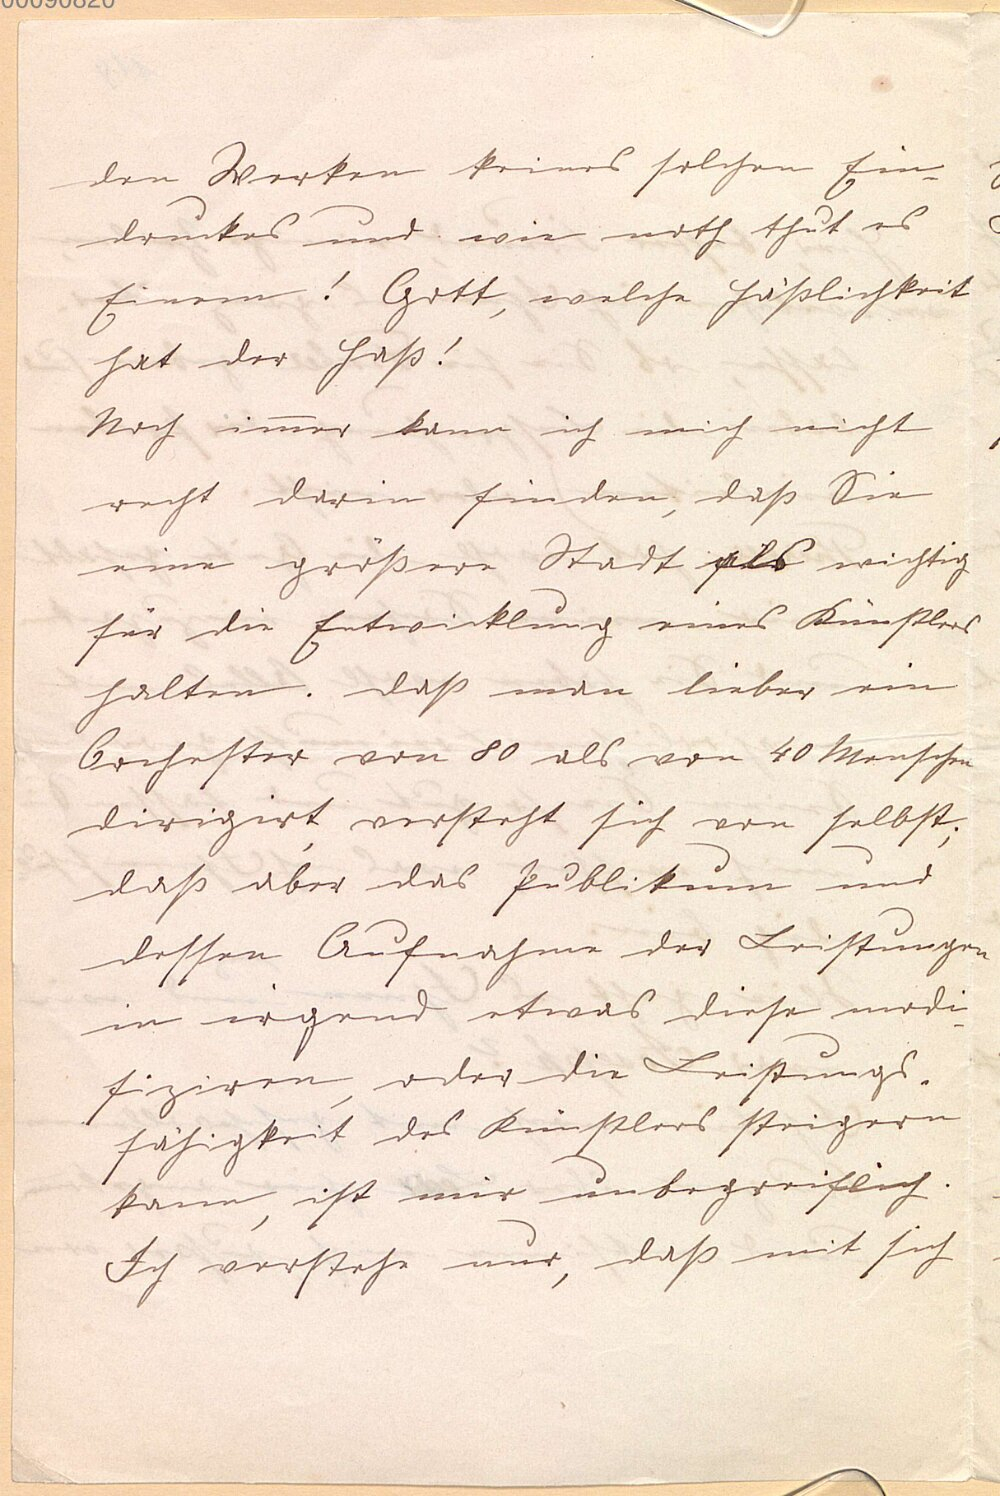 00090820
den Werken keines solchen Ein-
druckes und wie noth thut es
Einem! Gott, welche Häßlichkeit
hat der Haß!
Noch im̅er kann ich mich nicht
recht darin finden, daß Sie
eine größere Stadt als wichtig
für die Entwicklung eines Künstlers
halten. Daß man lieber ein
Orchester von 80 als von 40 Menschen
dirigirt, versteht sich von selbst;
daß aber das Publikum und
dessen Aufnahme der Leistungen
in irgend etwas diese modi-
fiziren, oder die Leistungs-
fähigkeit des Künstlers steigern
kann, ist mir unbegreiflich.
Ich verstehe nur, daß mit sich